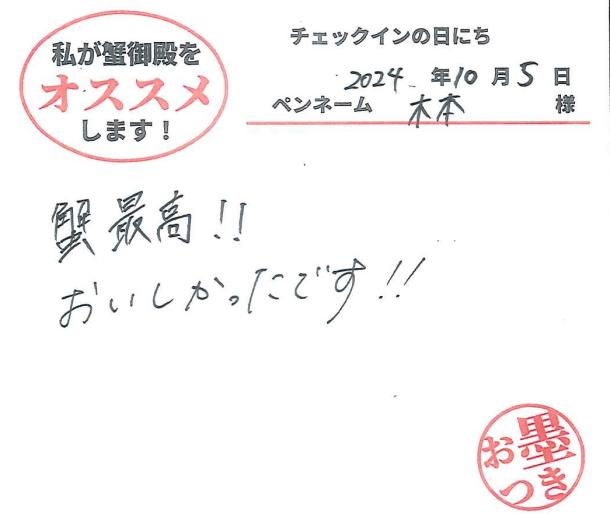 私が蟹御殿を
オススメ
します！
チェックインの日にち
2024年10月5日
ペンネーム 木本 様
蟹最高!!
おいしかったです!!
お墨
つき